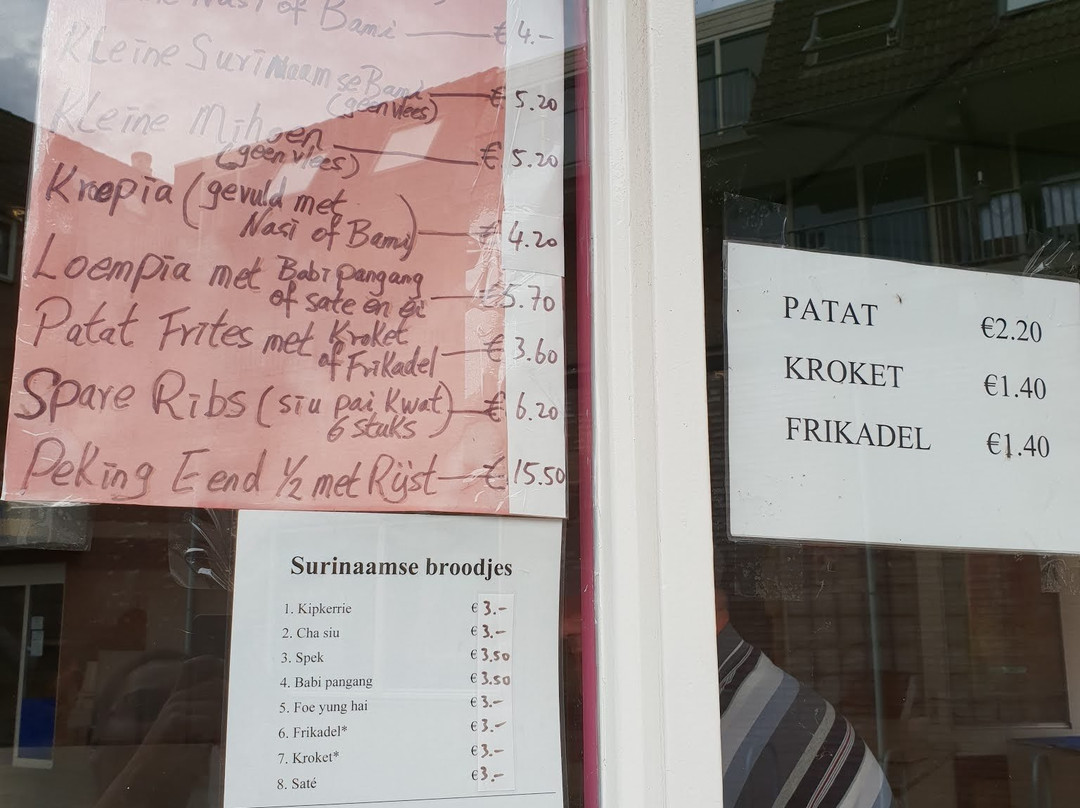 Nasi of Bami € 4.-
Kleine Surinaamse Bami € 5.20
(geen vlees)
Kleine Mihoen € 5.20
(geen vlees)
Kroepia (gevuld met
Nasi of Bami) € 4.20
Loempia met Babi pangang
of sate en ei € 5.70
Patat Frites met Kroket
of Frikadel € 3.60
Spare Ribs (siu pai kwat) € 6.20
6 stuks
Peking Eend 1/2 met Rijst € 15.50
Surinaamse broodjes
1. Kipkerrie € 3.-
2. Cha siu € 3.-
3. Spek € 3.50
4. Babi pangang € 3.50
5. Foe yung hai € 3.-
6. Frikadel* € 3.-
7. Kroket* € 3.-
8. Saté € 3.-
PATAT €2.20
KROKET €1.40
FRIKADEL €1.40